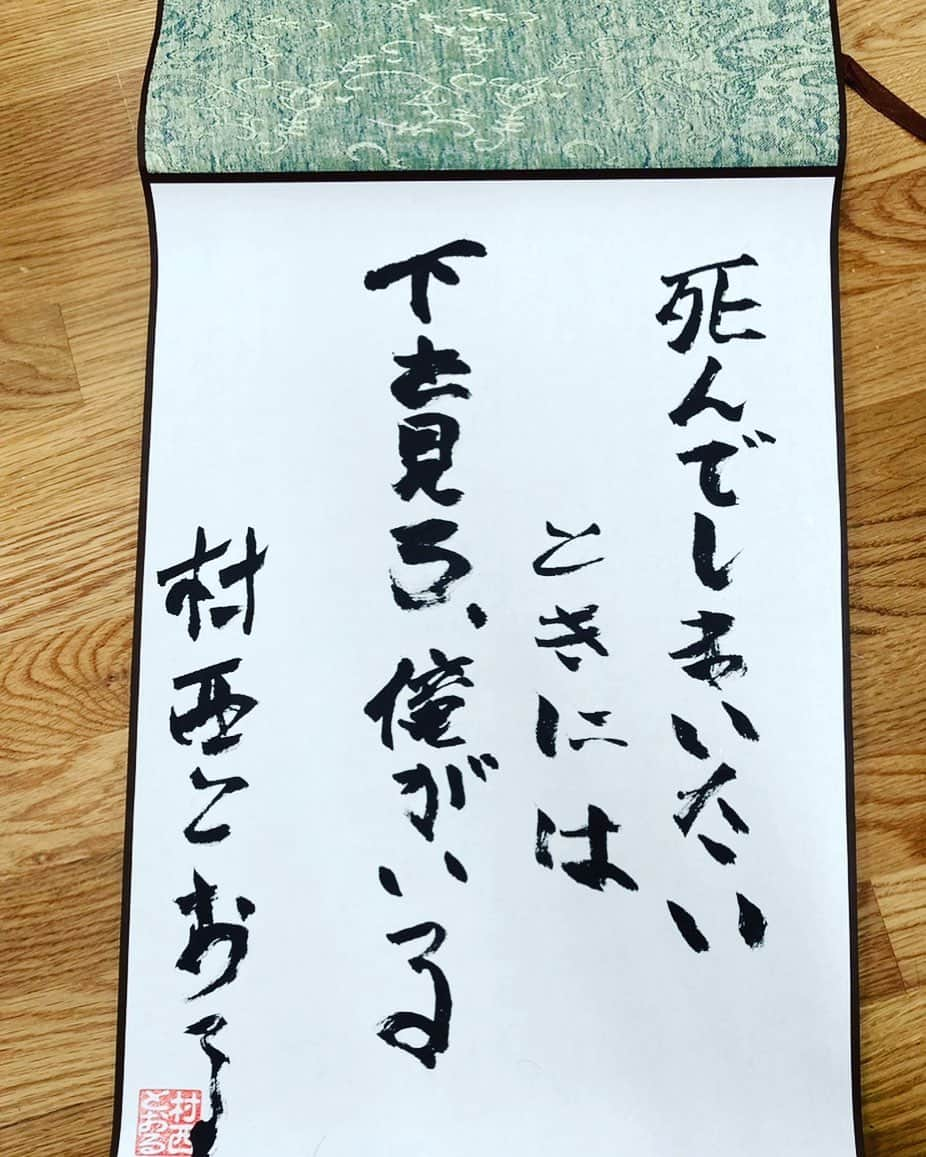 死んでしまいたい
ときには
下を見ろ、俺がいる
村西とおる
村西
とおる